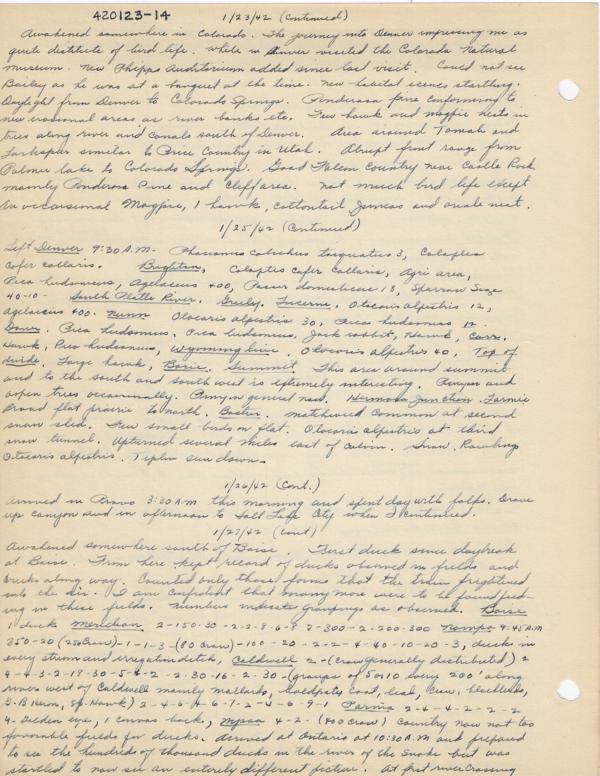 420123-14
1/23/42 (Continued)
Awakened somewhere in Colorado. The journey into Denver impressing me as
quite destitute of bird life. While in Denver visited the Colorado Natural
Museum. New Phipps Auditorium added since last visit. Could not see
Bailey as he was at a banquet at the time. New habitat scenes startling.
Daylight from Denver to Colorado Springs. Ponderosa pine conforming to
new erosional areas, as river banks etc. Few hawk and magpie nests in
trees along river and canals south of Denver. Area around Tomah and
Larkspur similar to Price Country in Utah. Abrupt front range from
Palmer Lake to Colorado Springs. Good Falcon Country near Castle Rock
mainly Ponderosa Pine and Cliff area. Not much bird life except
an occasional Magpie, 1 hawk, cottontail, Juncos and oriole nest.
1/25/42 (Continued)
Left Denver 9:30 A.M- Phasianus colchicus torquatus 3, Colaptes
cafer collaris. Brighton, Colaptes cafer collaris, Agri area,
Pica hudsonius, Agelaeus 400, Passer domesticus 18, Sparrow Size
40-10- South Platte River. Greely. Lucerne. Otocoris alpestris 12,
Agelaius 400. Nunn Otocoris alpestris 30, Pica hudsonius 12.
Dover. Pica hudsonius, Pica hudsonius, Jack rabbit, Hawk, Carr.
Hawk, Pica hudsonius, Wyoming line. Otocoris alpestris 40, Top of
divide. Large hawk, Borie. Summit. This area around summit
and to the south and southwest is extremely interesting. Canyon and
aspen trees occasionally. Canyon general now. Hermosa Junction. Larmie
Broad flat prairie to north. Bosler. Matchwood common at second
snow shed. Few small birds on flat. Otocoris alpestris at third
snow tunnel. Upturned several miles east of Colvin. Snow. Rawlings
Otocoris alpestris. Tipton sun down.
1/26/42 (Cont.)
Arrived in Provo 3:30 A.M this morning and spent day with folks. Drove
up canyon and in afternoon to Salt Lake City when I continued.
1/27/42 (Cont)
Awakened somewhere south of Boise. First duck since daybreak
at Boise. From here kept record of ducks observed in fields and
creeks along way. Counted only those forms that the train frightened
into the air. I am confident that many more were to be found feed-
ing in these fields. Numbers indicate groupings as observed. Boise
1 duck Meridian 2-150-30-2-2-9-6-8-2-300-2-200-300 Nampa 9:45 A.M
350-20 (250 Crow)-1-1-3-(80 crow)-100-20-2-2-4-40-10-20-3, ducks in
every stream and irrigation ditch, Caldwell 2-(crow generally distributed) 2
9-4-3-2-18-30-5-4-2-2-30-16-2-30-(groups of 5 or 10 every 200' along
river west of Caldwell mainly mallards, baldpate, coot, teal, crow, blackbirds,
G.B. Heron, Sp. Hawk) 2-4-6-4-6-7-2-4-6-9-1 Parma 2-4-4-2-2-2
4- Golden eye, 1 canvas back, Nyssa 4-2-(400 Crow) Country now not too
favorable fields for ducks. Arrived at Ontario at 10:30 A.M and prepared
to see the hundreds of thousand ducks in the river of the Snake but was
startled to now see an entirely different picture. At first river Crossing